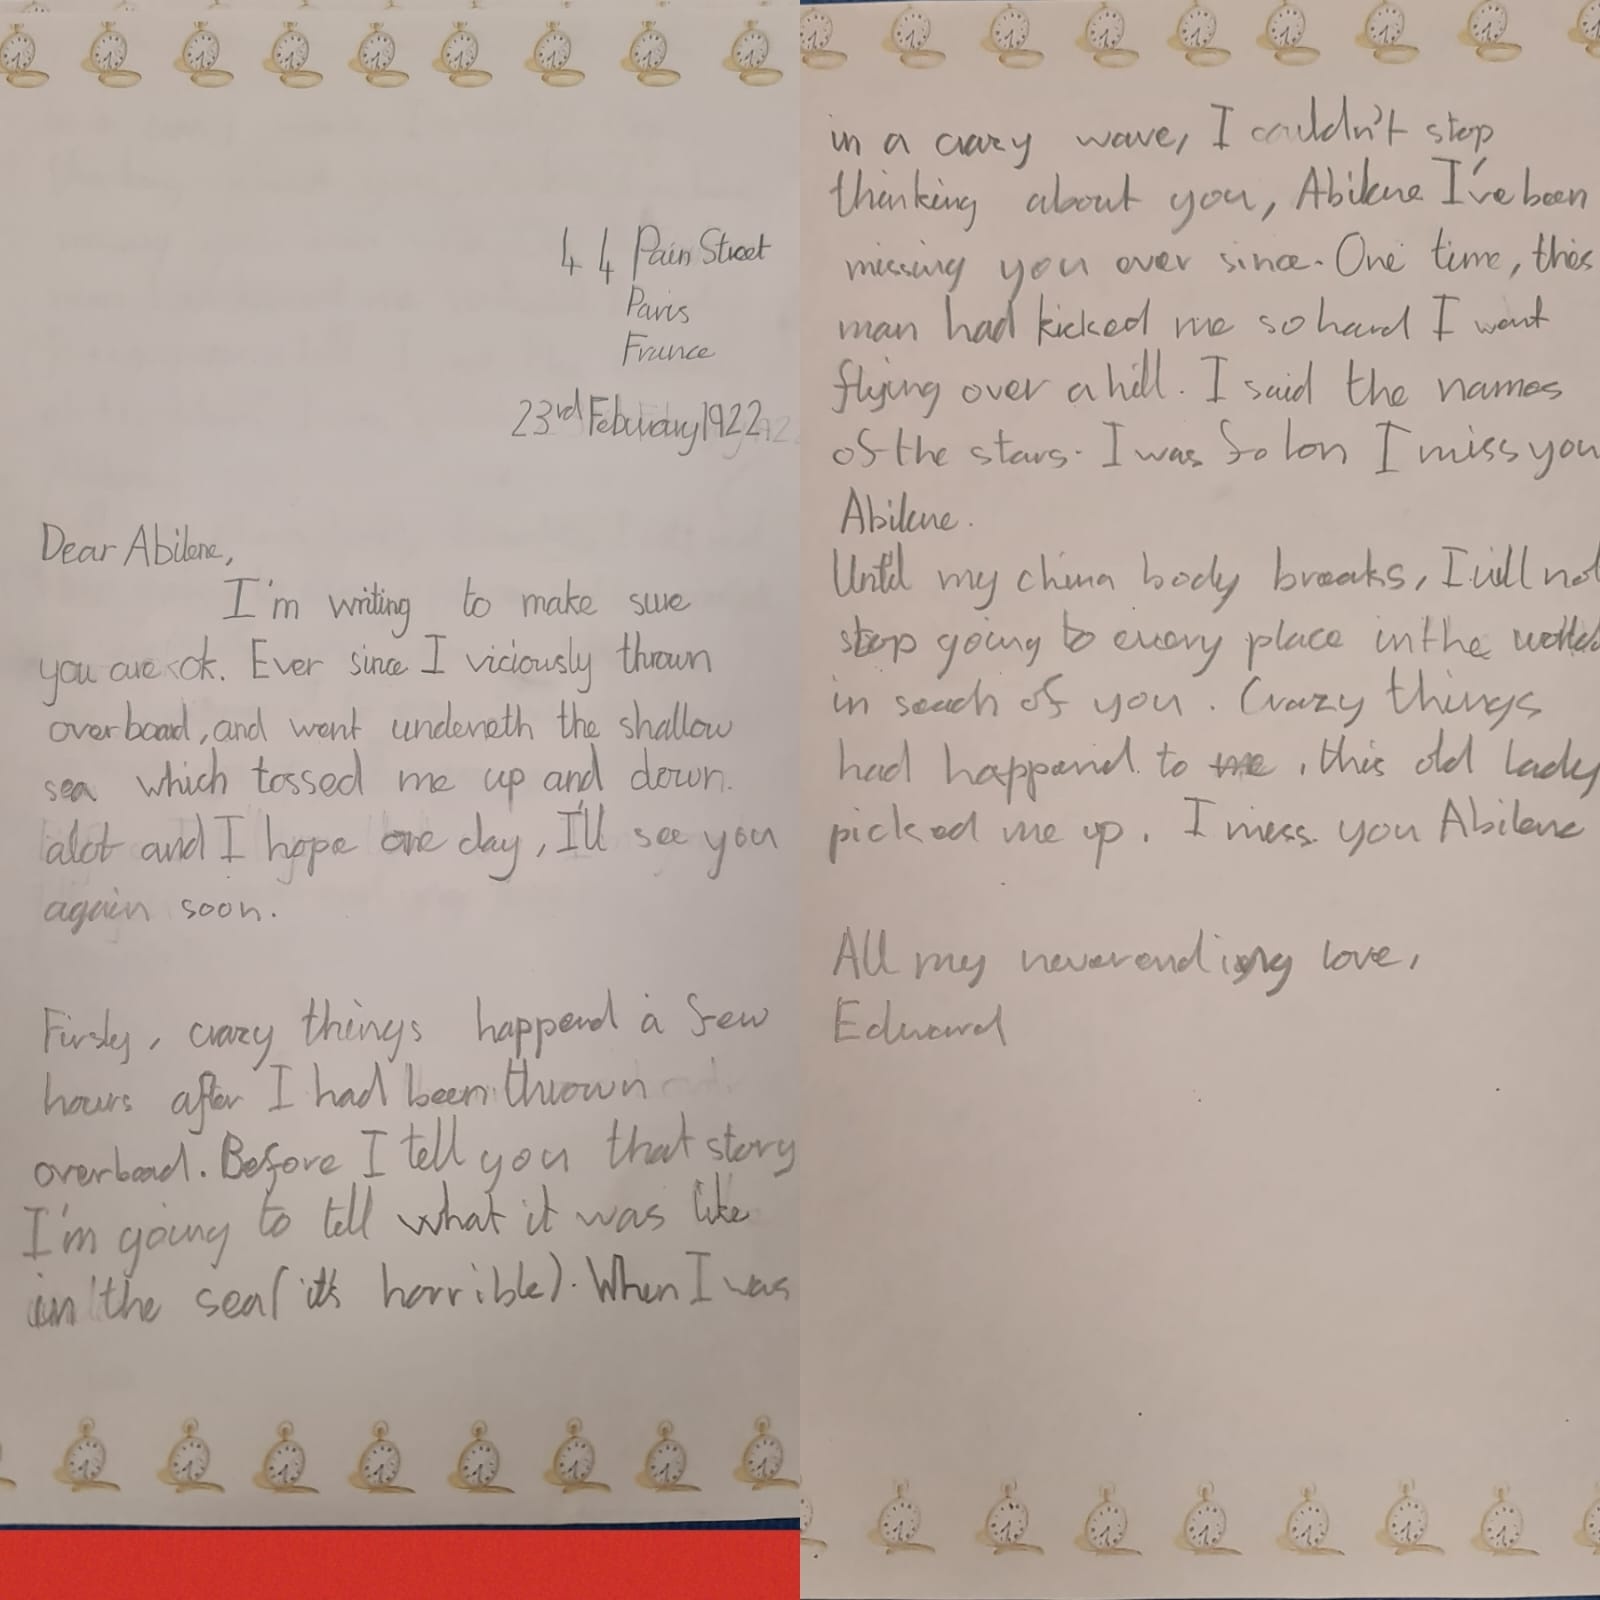 44 Pain Street
Paris
France
23rd Febuary 1922
Dear Abilene,
I'm writing to make sure
you are ok. Ever since I viciously thrown
overboad, and went underneth the shallow
sea which tossed me up and down.
alot and I hope one day, I'll see you
again soon.
Firsly, crazy things happend a few
hours after I had been thrown
overboad. Before I tell you that story
I'm going to tell what it was like
in the sea (it's horrible). When I was
in a crazy wave, I couldn't stop
thinking about you, Abilene I've been
missing you ever since. One time, this
man had kicked me so hard I went
flying over a hill. I said the names
of the stars. I was so lon I miss you
Abilene.
Until my china body breaks, I will not
stop going to every place in the world
in seach of you. Crazy things
had happend to me, this old lady
picked me up. I miss you Abilene
All my neverending love,
Edward